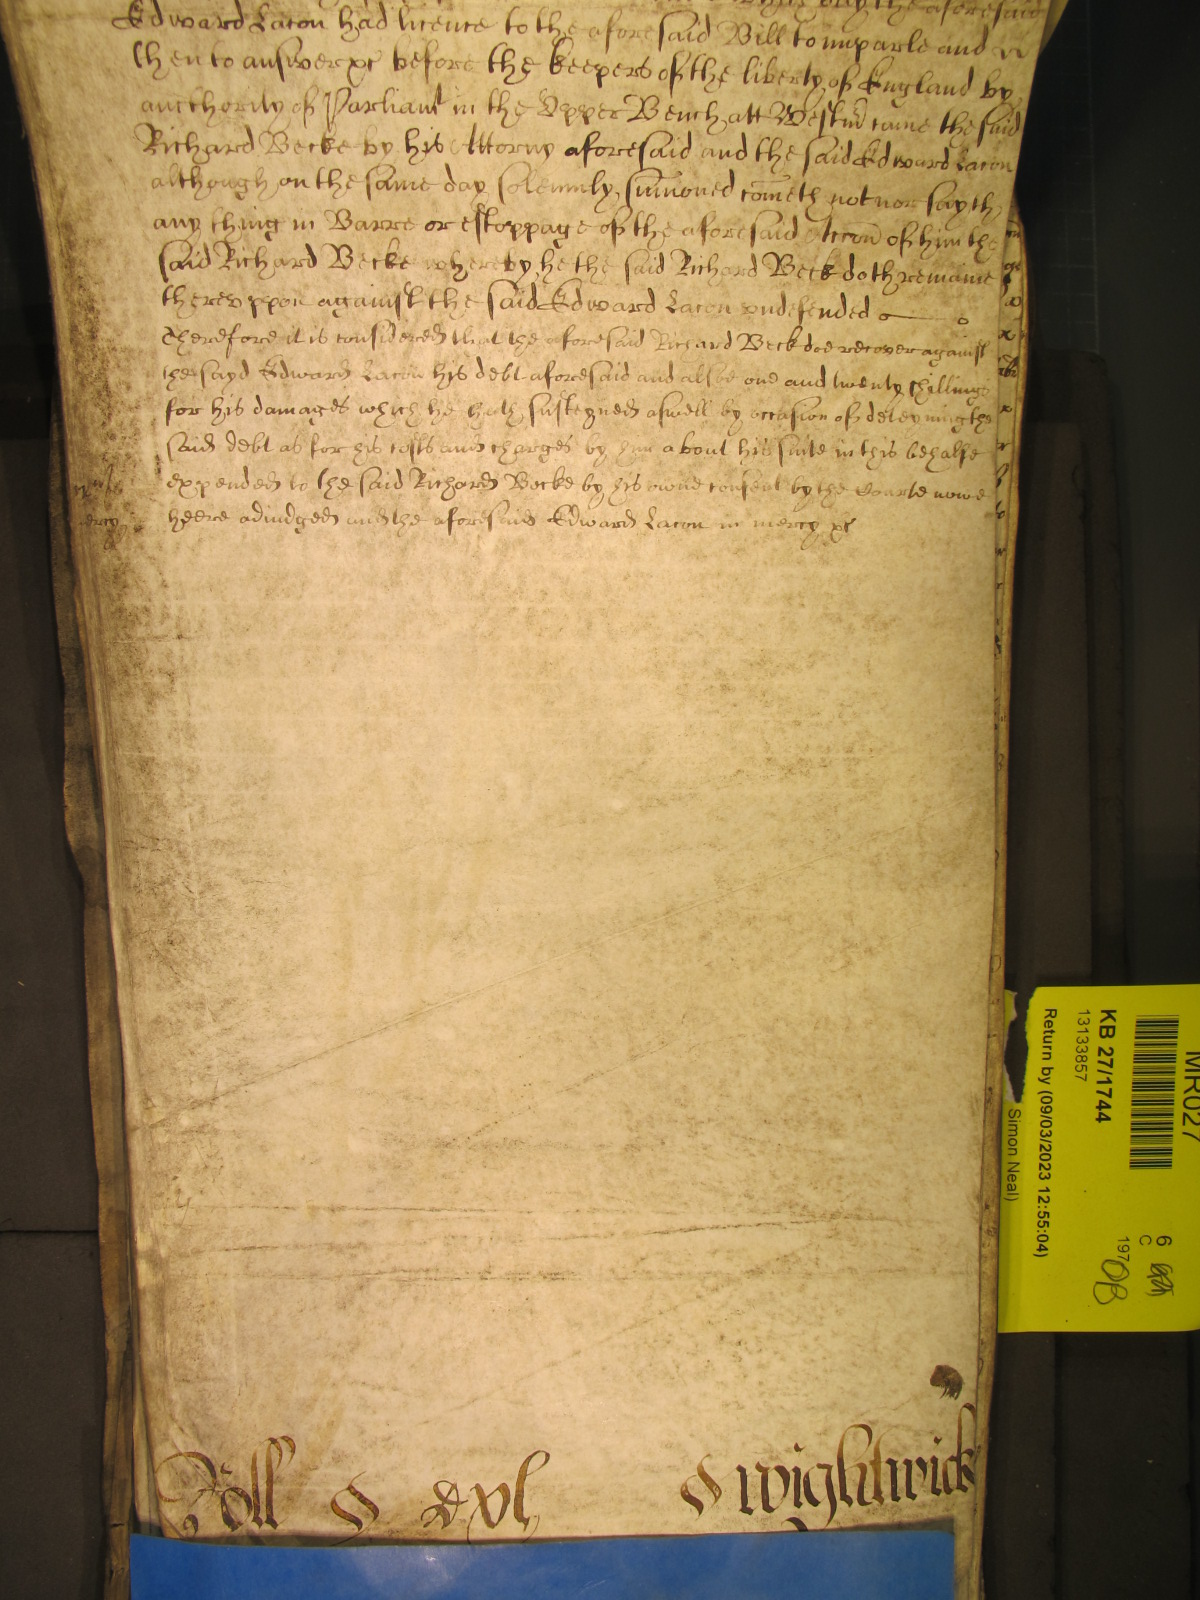 the aforesaid
Edward Lacon had licence to the aforesaid Bill to imparle and
then to answer &c before the keepers of the liberty of England by
aucthority of Parliamt in the Vpper Bench att Westmr came the said
Richard Becke by his Attorny aforesaid and the said Edward Lacon
although on the same day solemnly sumoned cometh not nor sayth
any thing in Barre or estoppage of the aforesaid Accon of him the
said Richard Becke whereby he the said Richard Beck doth remaine
therevppon against the said Edward Lacon vndefended
Therefore it is considered that the aforesaid Richard Beck doe recover against
the sayd Edward Lacon his debt aforesaid and alsoe one and twenty shillings
for his damages which he hath susteyned aswell by occasion of deteyning the
said debt as for his costs and charges by him about his suite in this behalfe
expended to the said Richard Becke by his owne consent by the Courte nowe
heere adiudged and the aforesaid Edward Lacon in mercy &c
mercy
Roll
wightwick
MR027
KB 27/1744
13133857
Return by (09/03/2023 12:55:04)
Simon Neal)
6
C
197